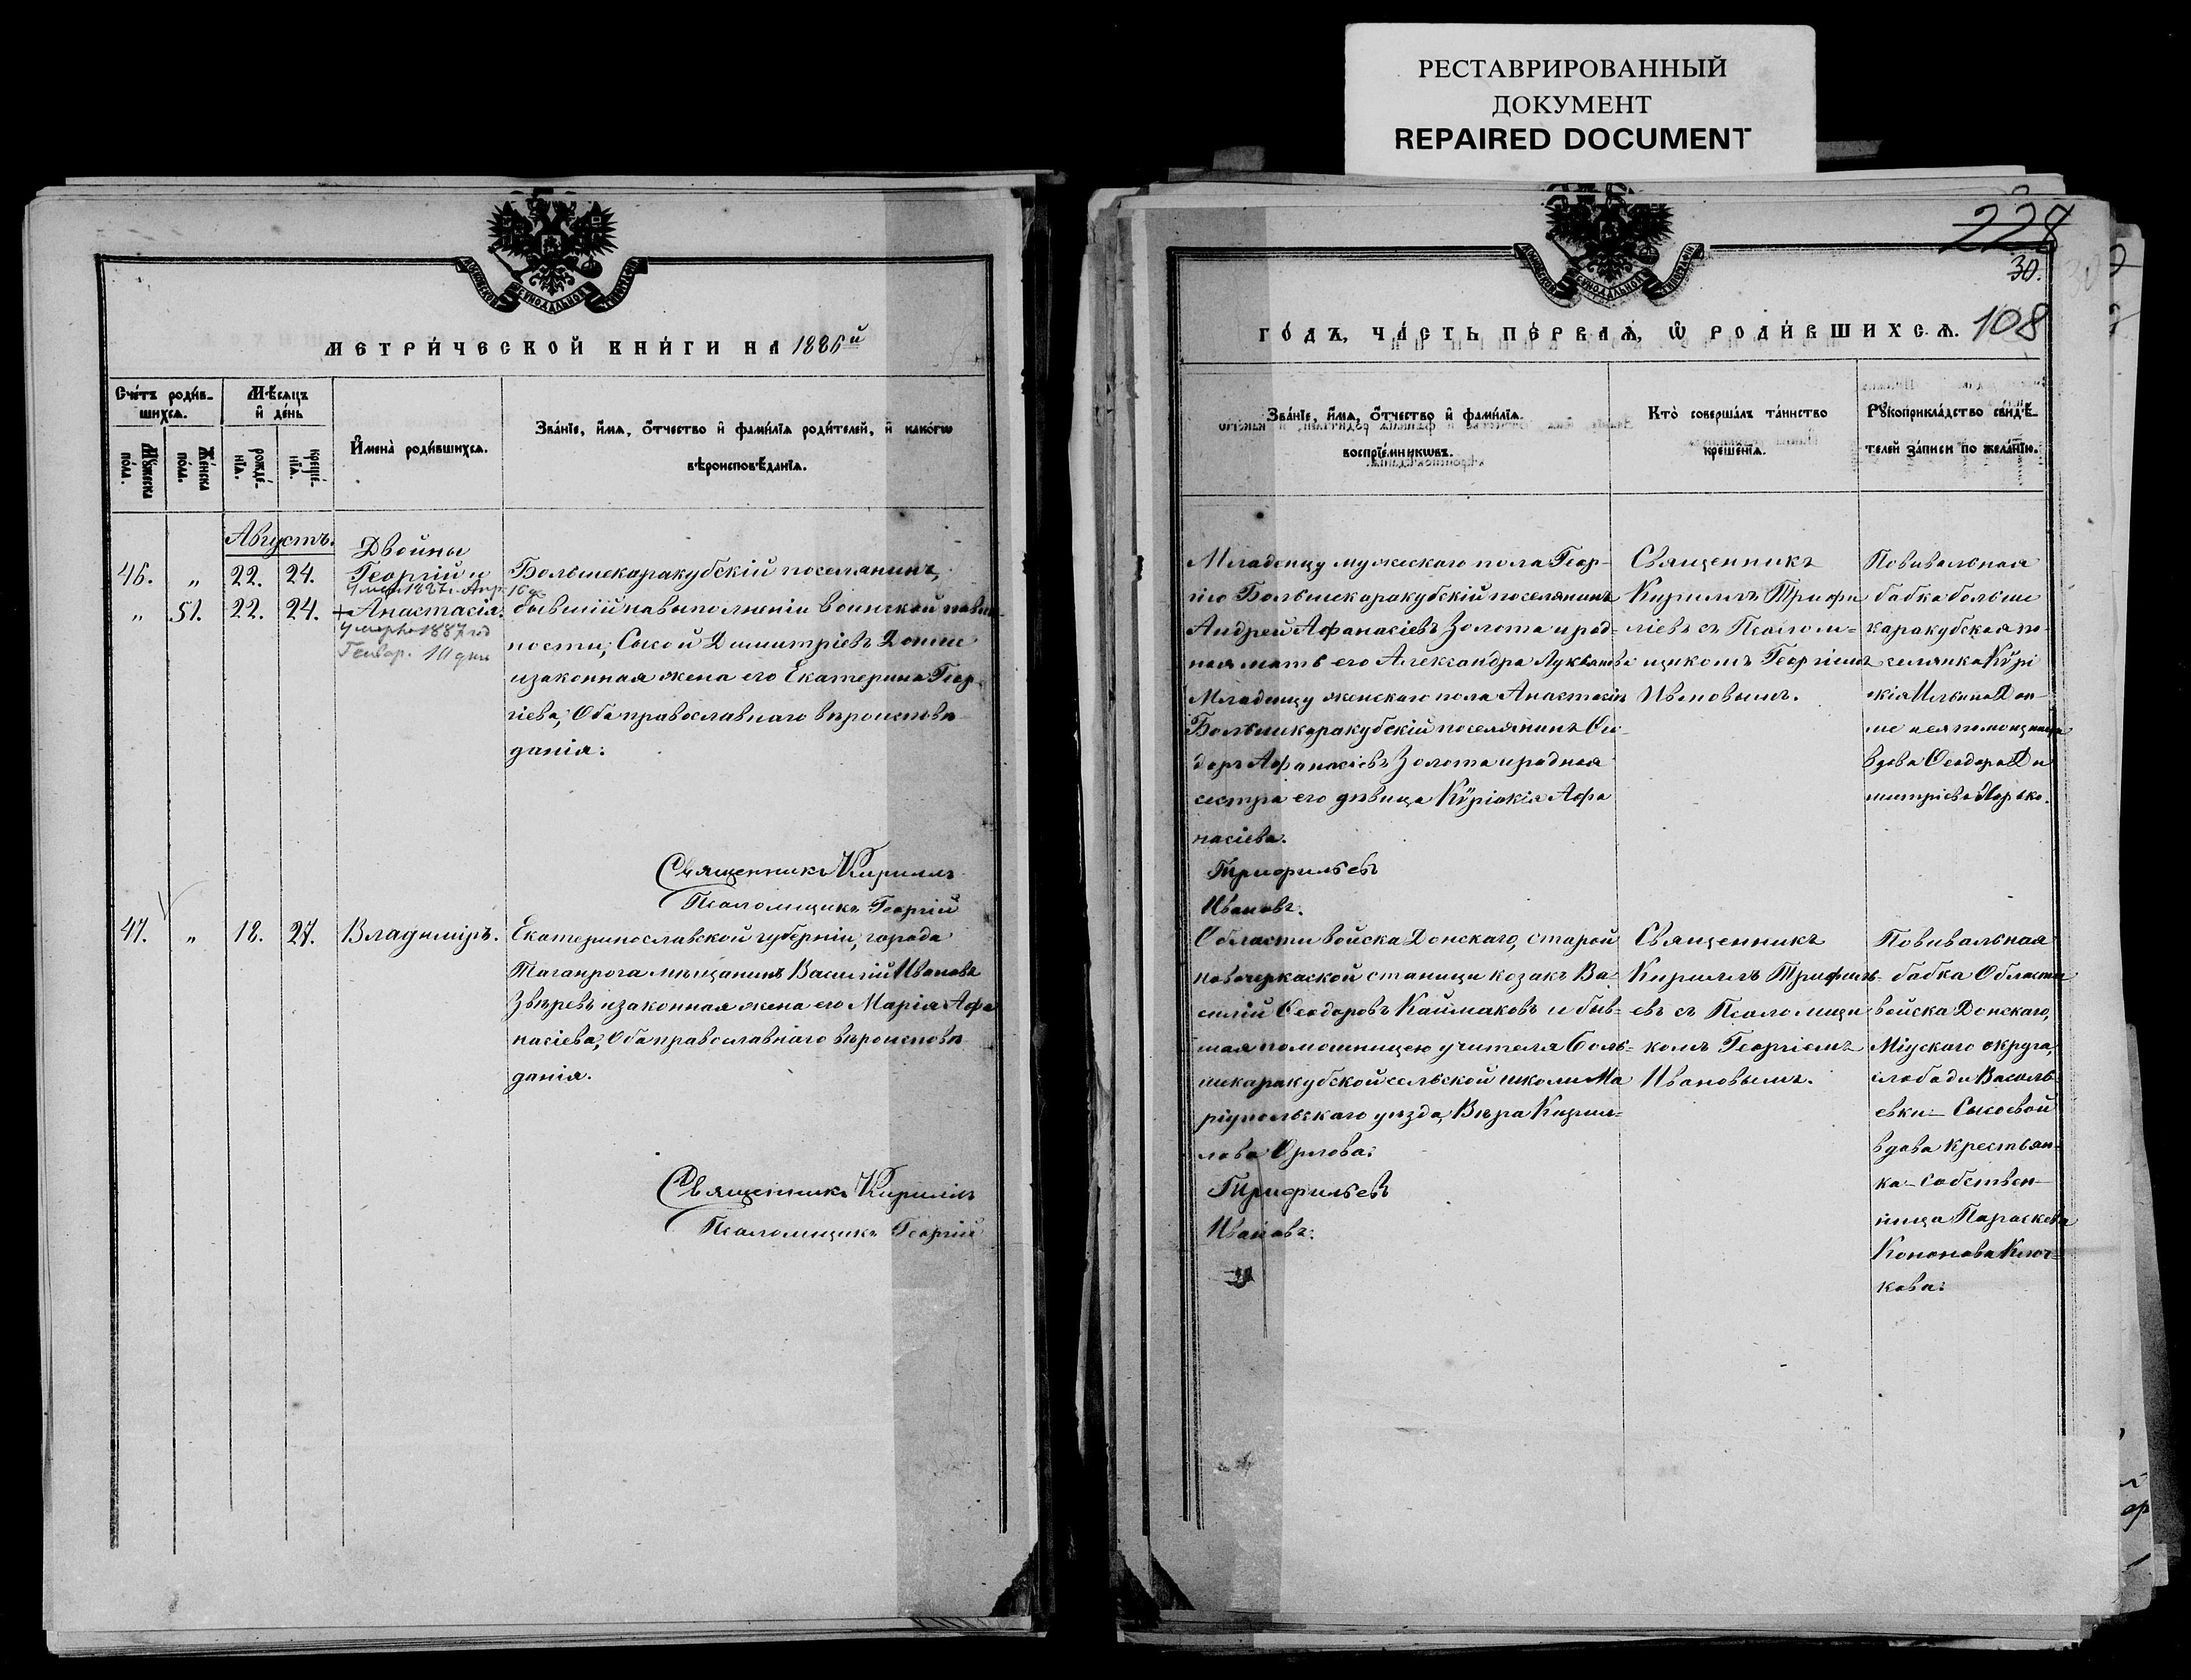 РЕСТАВРИРОВАННЫЙ
ДОКУМЕНТ
REPAIRED DOCUMENT
МЕТРИ́ЧЕСКОЙ КНИ́ГИ НА 1886й
Сче́тъ роди́в-
шихсѧ.
Мѣ́сѧцъ
и҆ де́нь
Мꙋ́жеска
по́ла.
Же́нска
по́ла.
рожде́-
нїѧ.
креще́-
нїѧ.
И҆мена̀ роди́вшихсѧ.
Зва́нїе, и҆́мѧ, ѻ҆́тчество и҆ фами́лїѧ роди́телей, и҆ како́гѡ
вѣроисповѣ́данїѧ.
Августъ.
Двойны
46. „ 22. 24. Георгій и
Большекаракубскій поселянинъ,
„ 51. 22. 24. + Анастасія.
бывшій на выполненіи воинской повин-
Умерла 1887 год
Генвар. 10 дня
ности; Сысой Димитріевъ Донше
и законная жена его Екатерина Геор-
гіева; Оба православнаго вѣроисповѣ-
данія:
Священникъ Кириллъ
Псаломщикъ Георгій
47. „ 18. 27. Владиміръ.
Екатеринославской губерніи, города
Таганрога мѣщанинъ Василій Ивановъ
Звѣревъ и законная жена его Марія Афа
насіева, Оба православнаго вѣроисповѣ-
данія.
Священникъ Кириллъ
Псаломщикъ Георгій
228
30.
108
ГО́ДЪ, ЧА́СТЬ ПЕ́РВАѦ, Ѡ҆ РОДИ́ВШИХСѦ.
Зва́нїе, и҆́мѧ, ѻ҆́тчество и҆ фами́лїѧ
воспрїе́мникѡвъ.
Кто̀ соверша́лъ та́инство
креще́нїѧ.
Рꙋкоприкла́дство свидѣ́-
телей за́писи по жела́нїю.
Младенцу мужескаго пола Геор-
гію Большекаракубскій поселянинъ
Андрей Афанасіевъ Золота и род-
ная мать его Александра Лукьянова
Младенцу женскаго пола Анастасіи
Большекаракубскій поселянинъ Ѳео-
доръ Афанасіевъ Золота и родная
сестра его дѣвица Кѵріакія Афа
насіева.
Трифильевъ
Ивановъ.
Священникъ
Кириллъ Трифи
ліевъ съ Псалом-
щикомъ Георгіемъ
Ивановымъ.
Повивальная
бабка больше
каракубская по-
селянка Кѵрі
акія Ильина Дон-
ше и ея помощница
вдова Ѳеодора Ди
митріева
Области войска Донскаго, старой
новочеркаской станицы козакъ Ва-
силій Ѳеодоровъ Каймаковъ и быв-
шая помошницею учителя Боль-
шекаракубской сельской школы Ма
ріупольскаго уѣзда, Вѣра Кирил-
лова Орлова:
Трифильевъ
Ивановъ:
Священникъ
Кириллъ Трифиль-
евъ съ Псаломщи
комъ Георгіемъ
Ивановымъ.
Повивальная
бабка Области
войска Донскаго,
Міускаго округа,
слободы Василь-
евки – Сысоевой
вдова крестьян-
ка – собствен-
ница Параскева
Кононова Клоч-
кова: